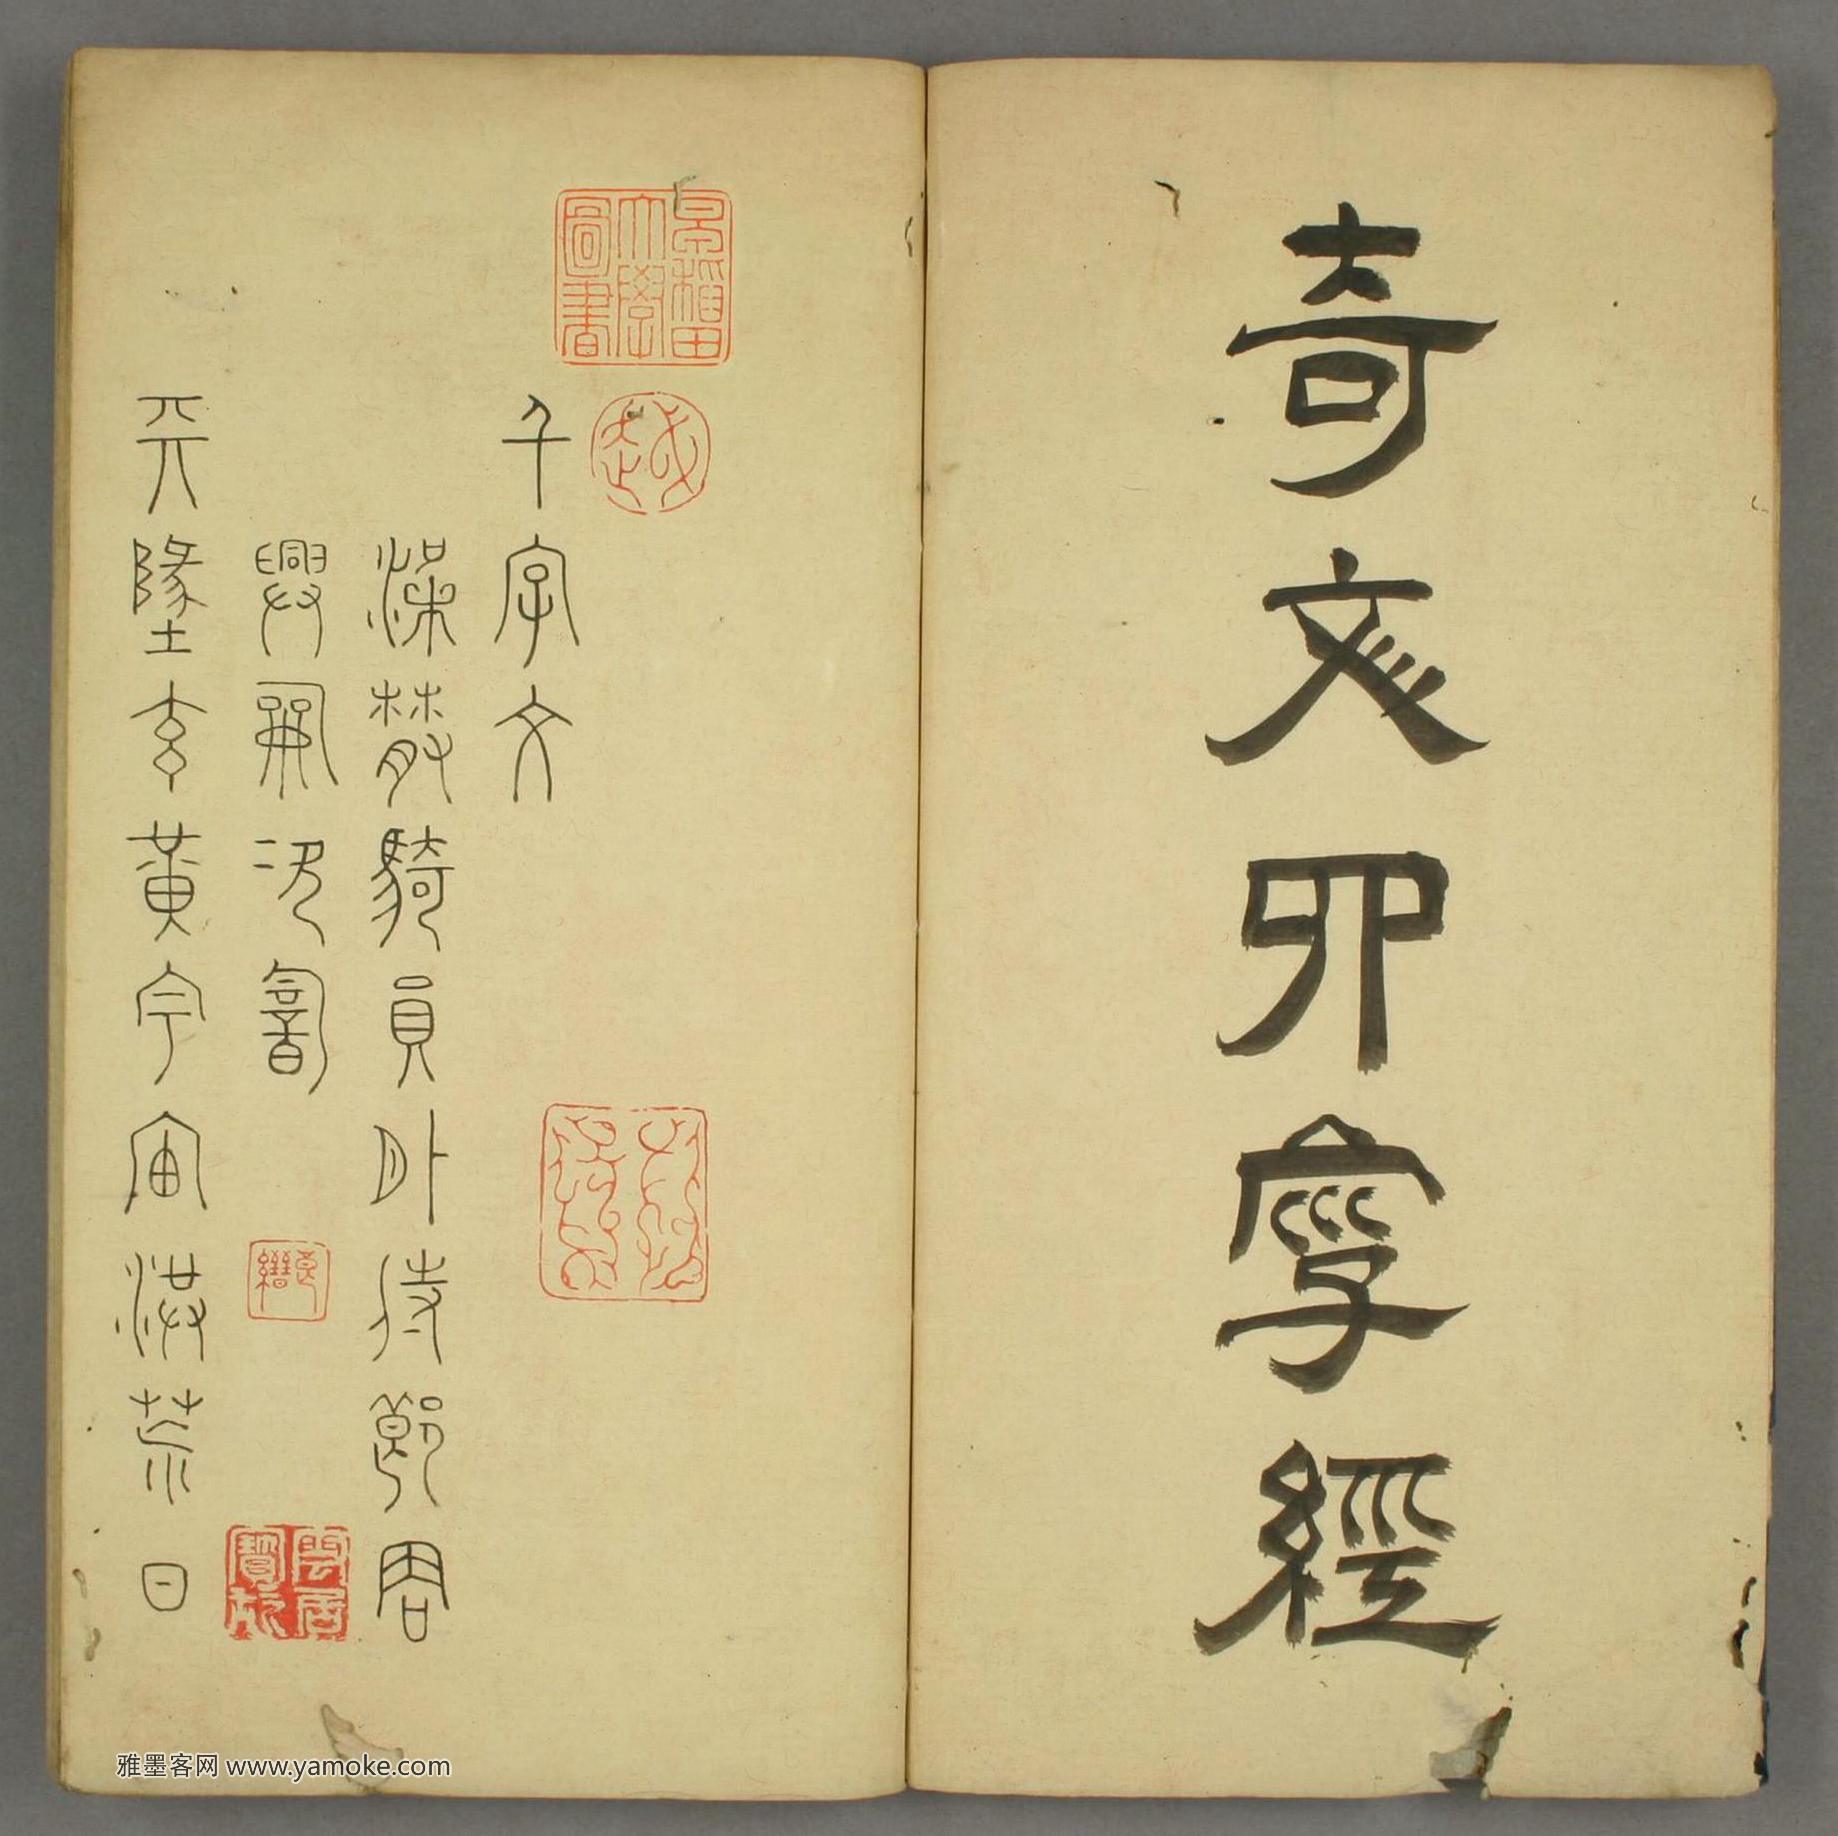 奇文經
早稻田大學圖書
千字文
梁散騎員外侍郎周
興嗣次韻
天墬玄黃宇宙洪荒日
雅墨客网 www.yamoke.com